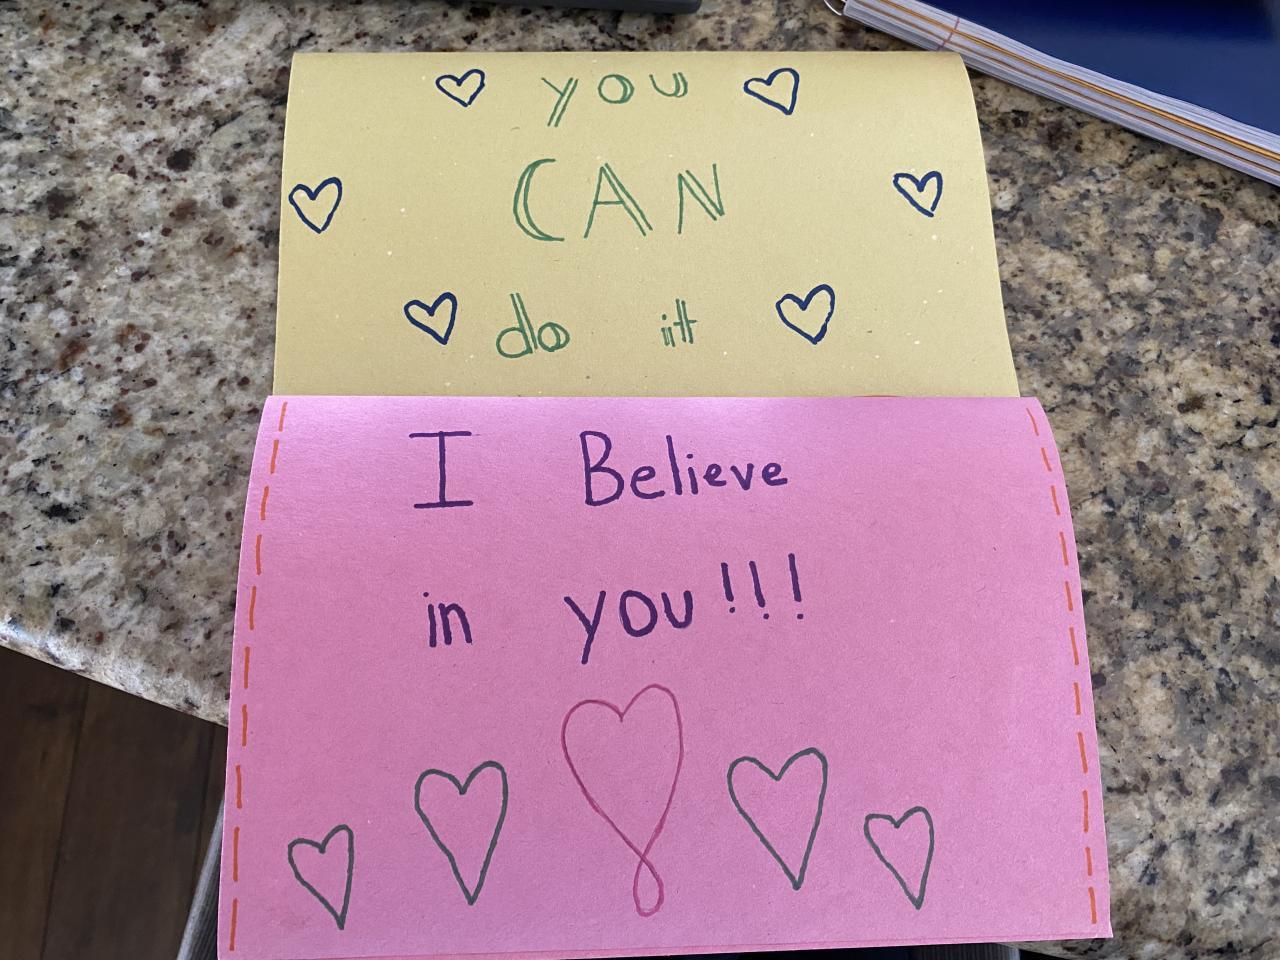 you
CAN
do it
I Believe
in you!!!